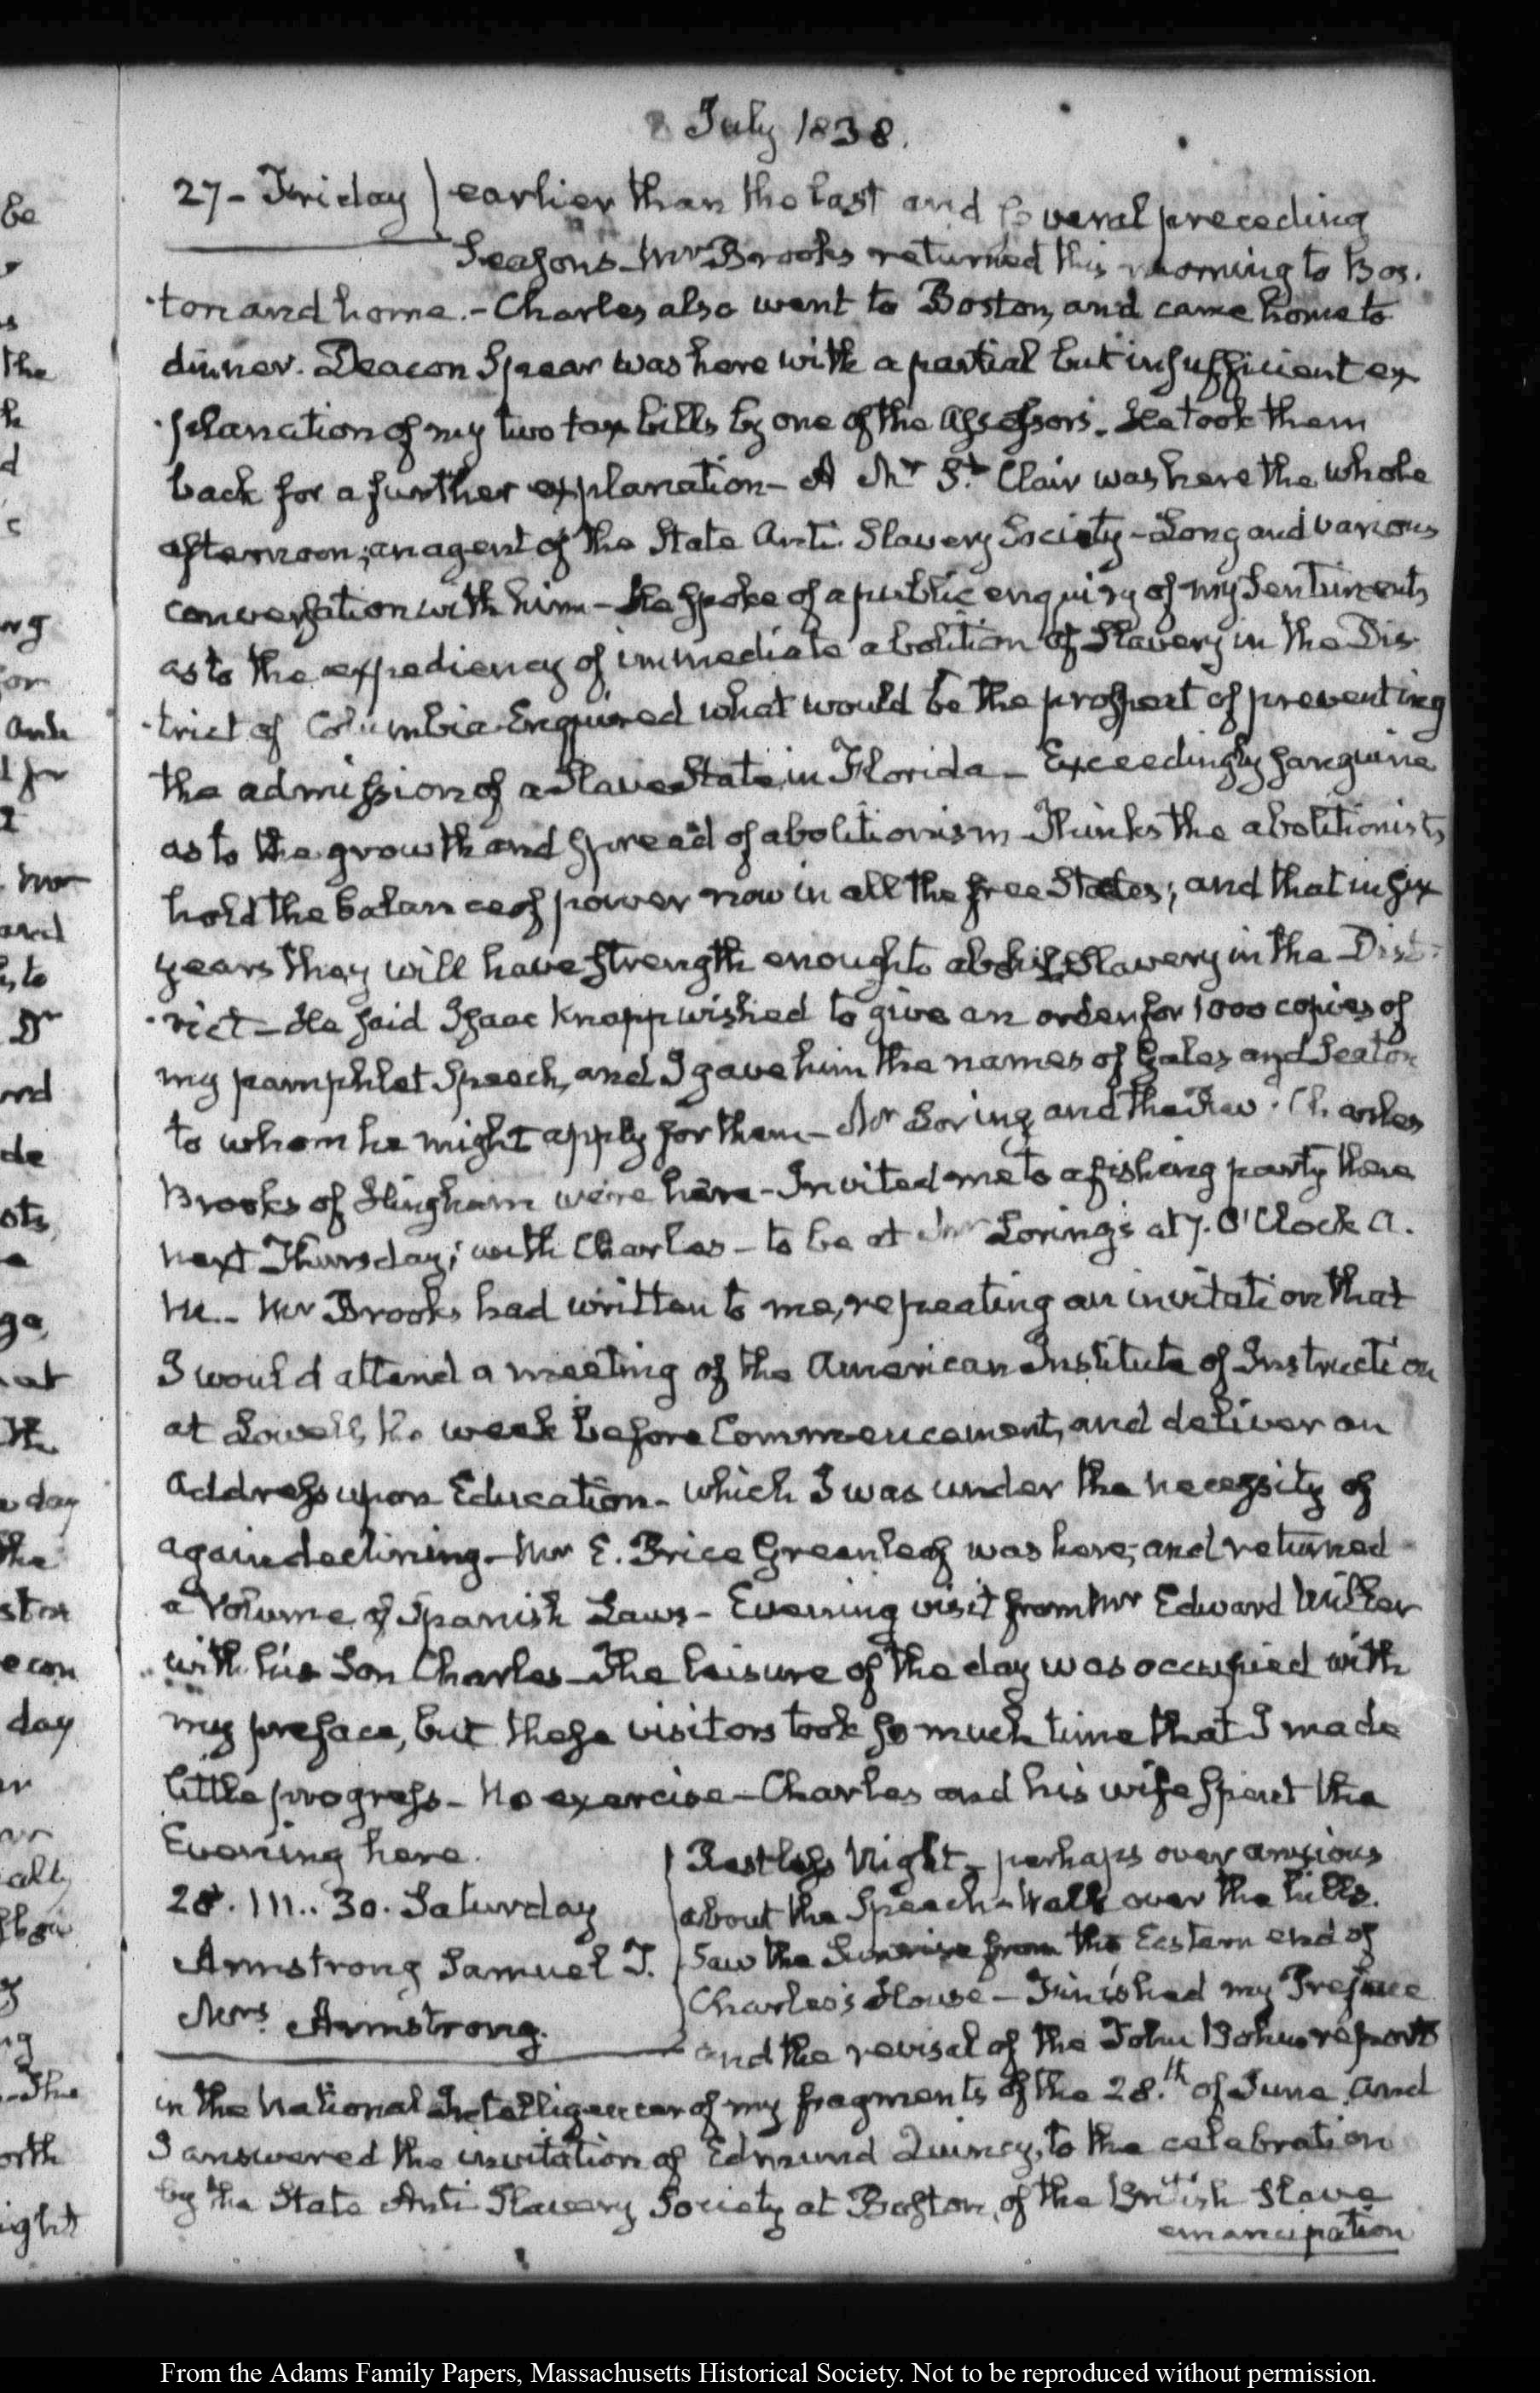 July 1838.
27 - Friday) earlier than the last and several preceding
Seasons - Mr Brooks returned this morning to Bos-
ton and home. - Charles also went to Boston, and came home to
dinner. Deacon Spear was here with a partial but insufficient ex
planation of my two tax bills by one of the Assessors. He took them
back for a further explanation - A Mr St Clair was here the whole
afternoon; an agent of the State Anti Slavery Society - Long and various
conversation with him - He spoke of a public enquiry of my Sentiments
as to the expediency of immediate abolition of Slavery in the Dis
trict of Columbia. Enquired what would be the prospect of preventing
the admission of a Slave State in Florida - Exceedingly sanguine
as to the growth and spread of abolitionism - Thinks the abolitionists
hold the balance of power now in all the free States; and that in six
years they will have strength enough to abolish Slavery in the Dist-
rict - He said Isaac Knapp wished to give an order for 1000 copies of
my pamphlet Speech, and I gave him the names of Gales and Seaton
to whom he might apply for them - Mr Loring and the Rev. Charles
Brooks of Hingham were here - Invited me to a fishing party there
next Thursday; with Charles - to be at Mr Loring's at 7. O'Clock A.
M. - Mr Brooks had written to me, repeating an invitation that
I would attend a meeting of the American Institute of Instruction
at Lowell, the week before Commencement, and deliver an
Address upon Education - which I was under the necessity of
again declining - Mr E. Price Greenleaf was here; and returned
a Volume of Spanish Laws - Evening visit from Mr Edward Miller
with his Son Charles - The leisure of the day was occupied with
my preface, but these visitors took so much time that I made
little progress - No exercise - Charles and his wife spent the
Evening here.
28. III.. 30. Saturday
Armstrong Samuel T.
Mrs Armstrong.
Restless Night - perhaps over anxious
about the Speech - Walk over the hills.
Saw the Sunrise from the Eastern end of
Charles's House - Finished my Preface
and the revisal of the John Bohun reports
in the National Intelligencer of my fragments of the 28.th of June. And
I answered the invitation of Edmund Quincy, to the celebration
by the State Anti Slavery Society at Boston, of the British Slave
emancipation
be
the
h
d
ng
or
mr
and
to
Dr
de
ots,
at
the
day
the
econ
day
ally
ng
The
orth
ight
From the Adams Family Papers, Massachusetts Historical Society. Not to be reproduced without permission.